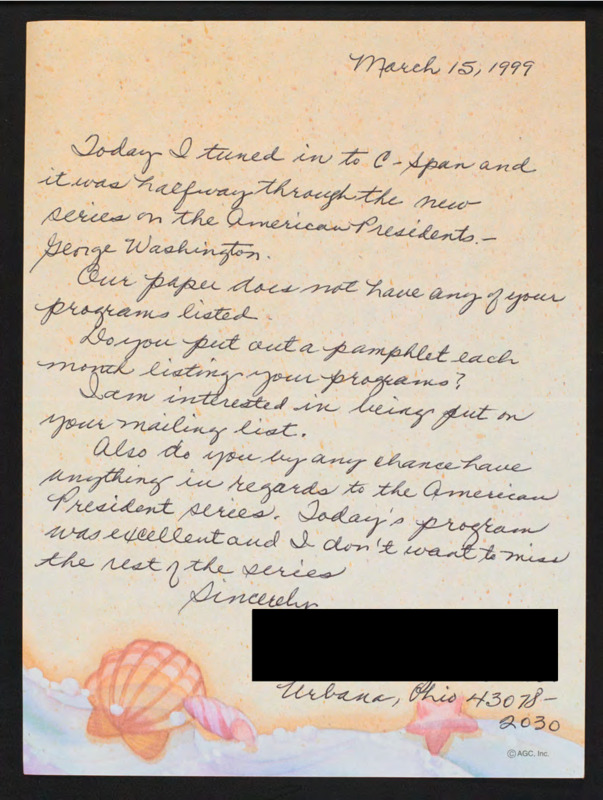 March 15, 1999
Today I tuned in to C-Span and
it was halfway through the new
series on the American Presidents.-
George Washington.
Our paper does not have any of your
programs listed
Do you put out a pamphlet each
month listing your programs?
I am interested in being put on
your mailing list.
Also do you by any chance have
anything in regards to the American
President series. Today's program
was excellent and I don't want to miss
the rest of the series
Sincerely
Urbana, Ohio 43078-
2030
©AGC, Inc.